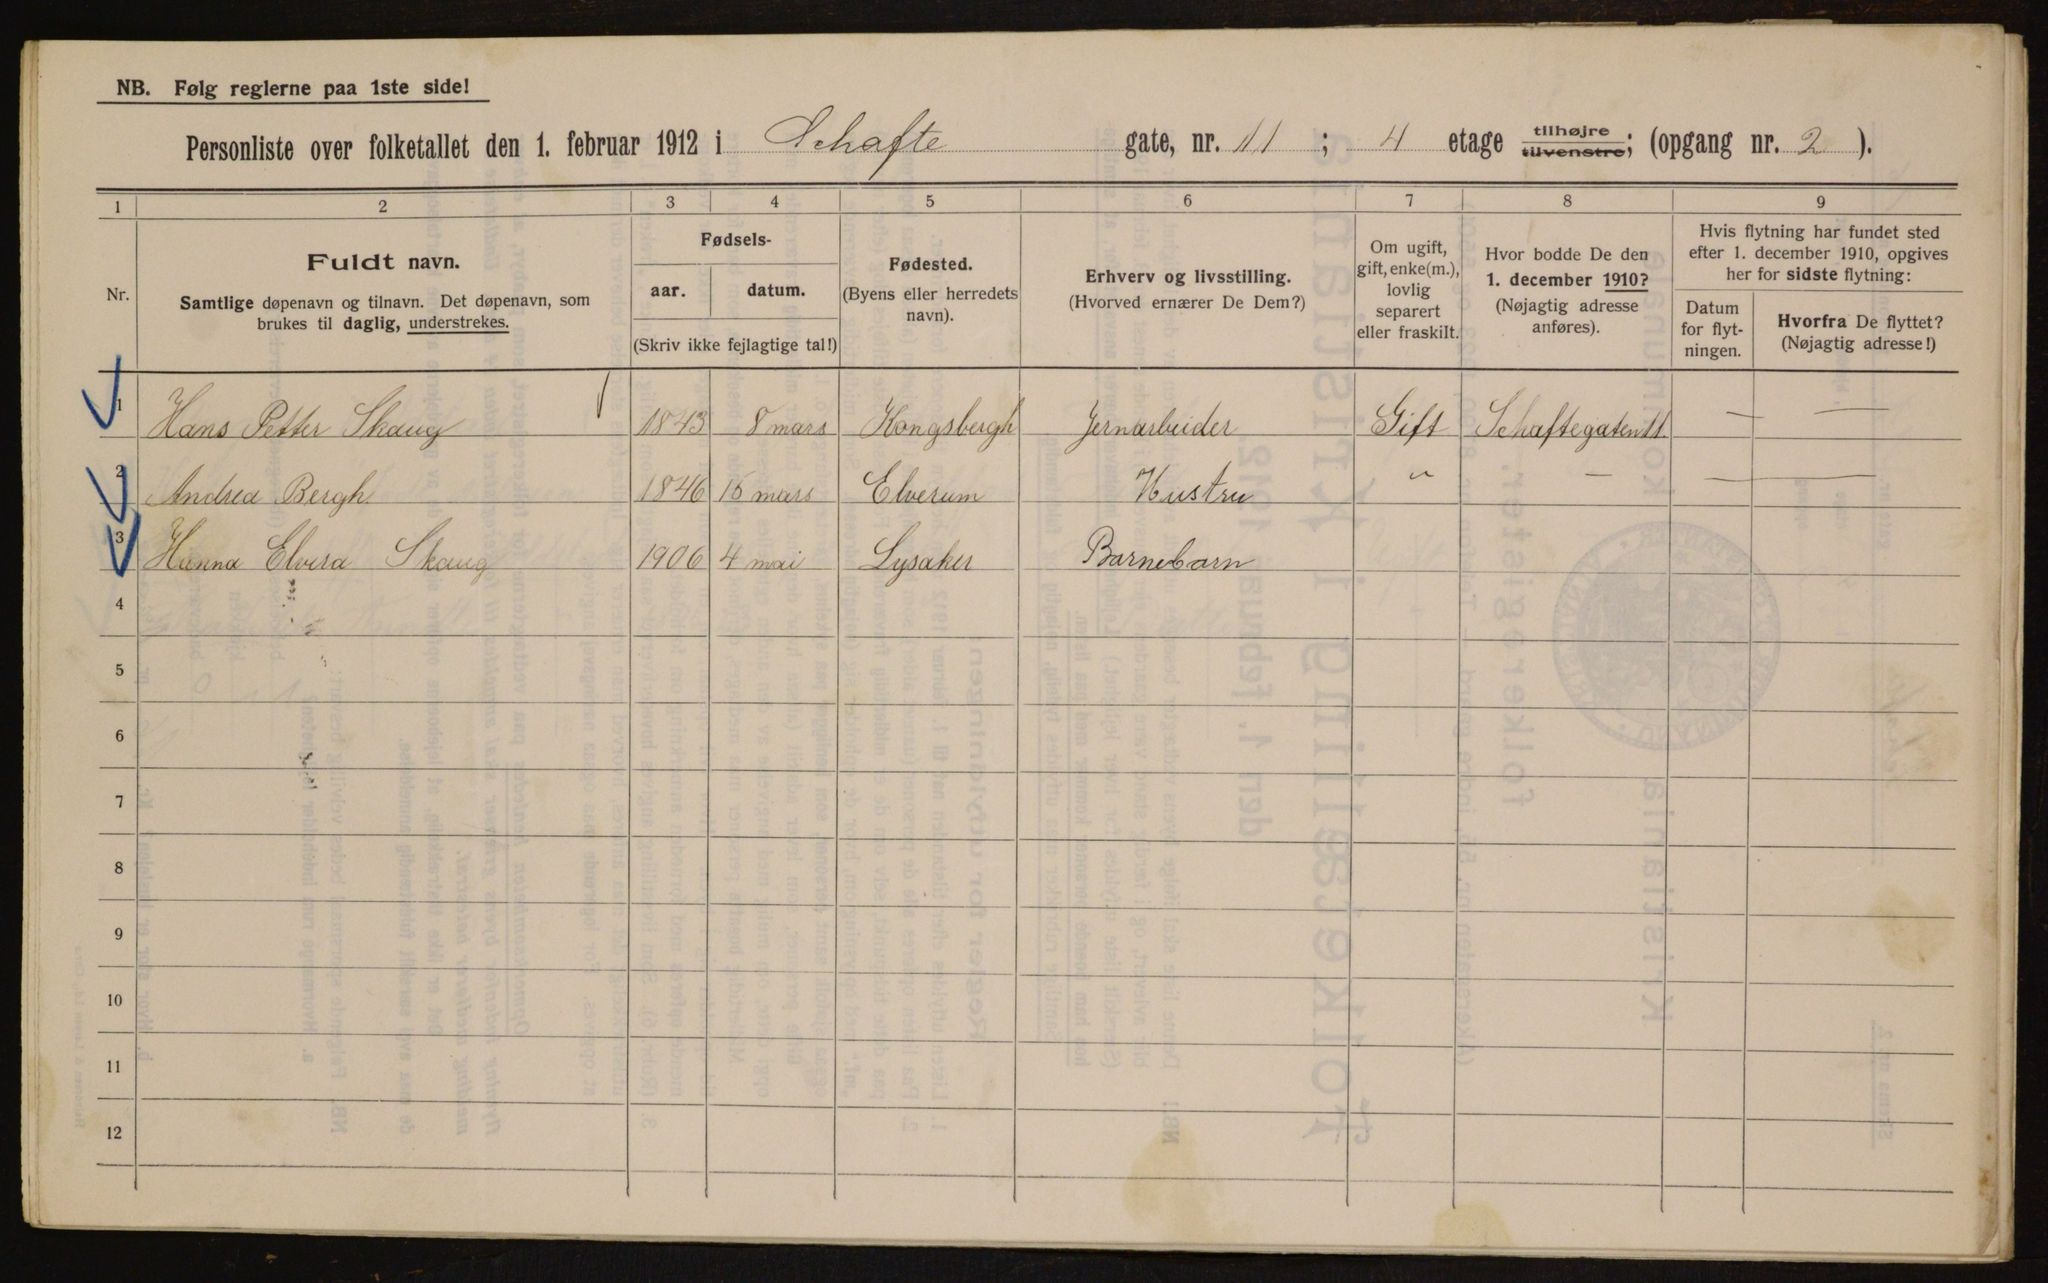 NB. Følg reglerne paa 1ste side!
Personliste over folketallet den 1. februar 1912 i Schafte gate, nr. 11 ; 4 etage tilhøjre tilvenstre; (opgang nr. 2 ).
1 2 3 4 5 6 7 8 9
Nr.
Fuldt navn.
Samtlige døpenavn og tilnavn. Det døpenavn, som
brukes til daglig, understrekes.
Fødsels-
aar. datum.
(Skriv ikke fejlagtige tal!)
Fødested.
(Byens eller herredets
navn).
Erhverv og livsstilling.
(Hvorved ernærer De Dem?)
Om ugift,
gift, enke(m.),
lovlig
separert
eller fraskilt.
Hvor bodde De den
1. december 1910?
(Nøjagtig adresse
anføres).
Hvis flytning har fundet sted
efter 1. december 1910, opgives
her for sidste flytning:
Datum
for flyt-
ningen.
Hvorfra De flyttet?
(Nøjagtig adresse!)
1 Hans Petter Skaug 1843 8 mars Kongsbergh Jernarbeider Gift Schaftegaten 11 — —
2 Andrea Bergh 1846 15 mars Elverum Hustru " — — —
3 Hanna Elvira Skaug 1906 4 mai Lysaker Barnebarn
4
5
6
7
8
9
10
11
12